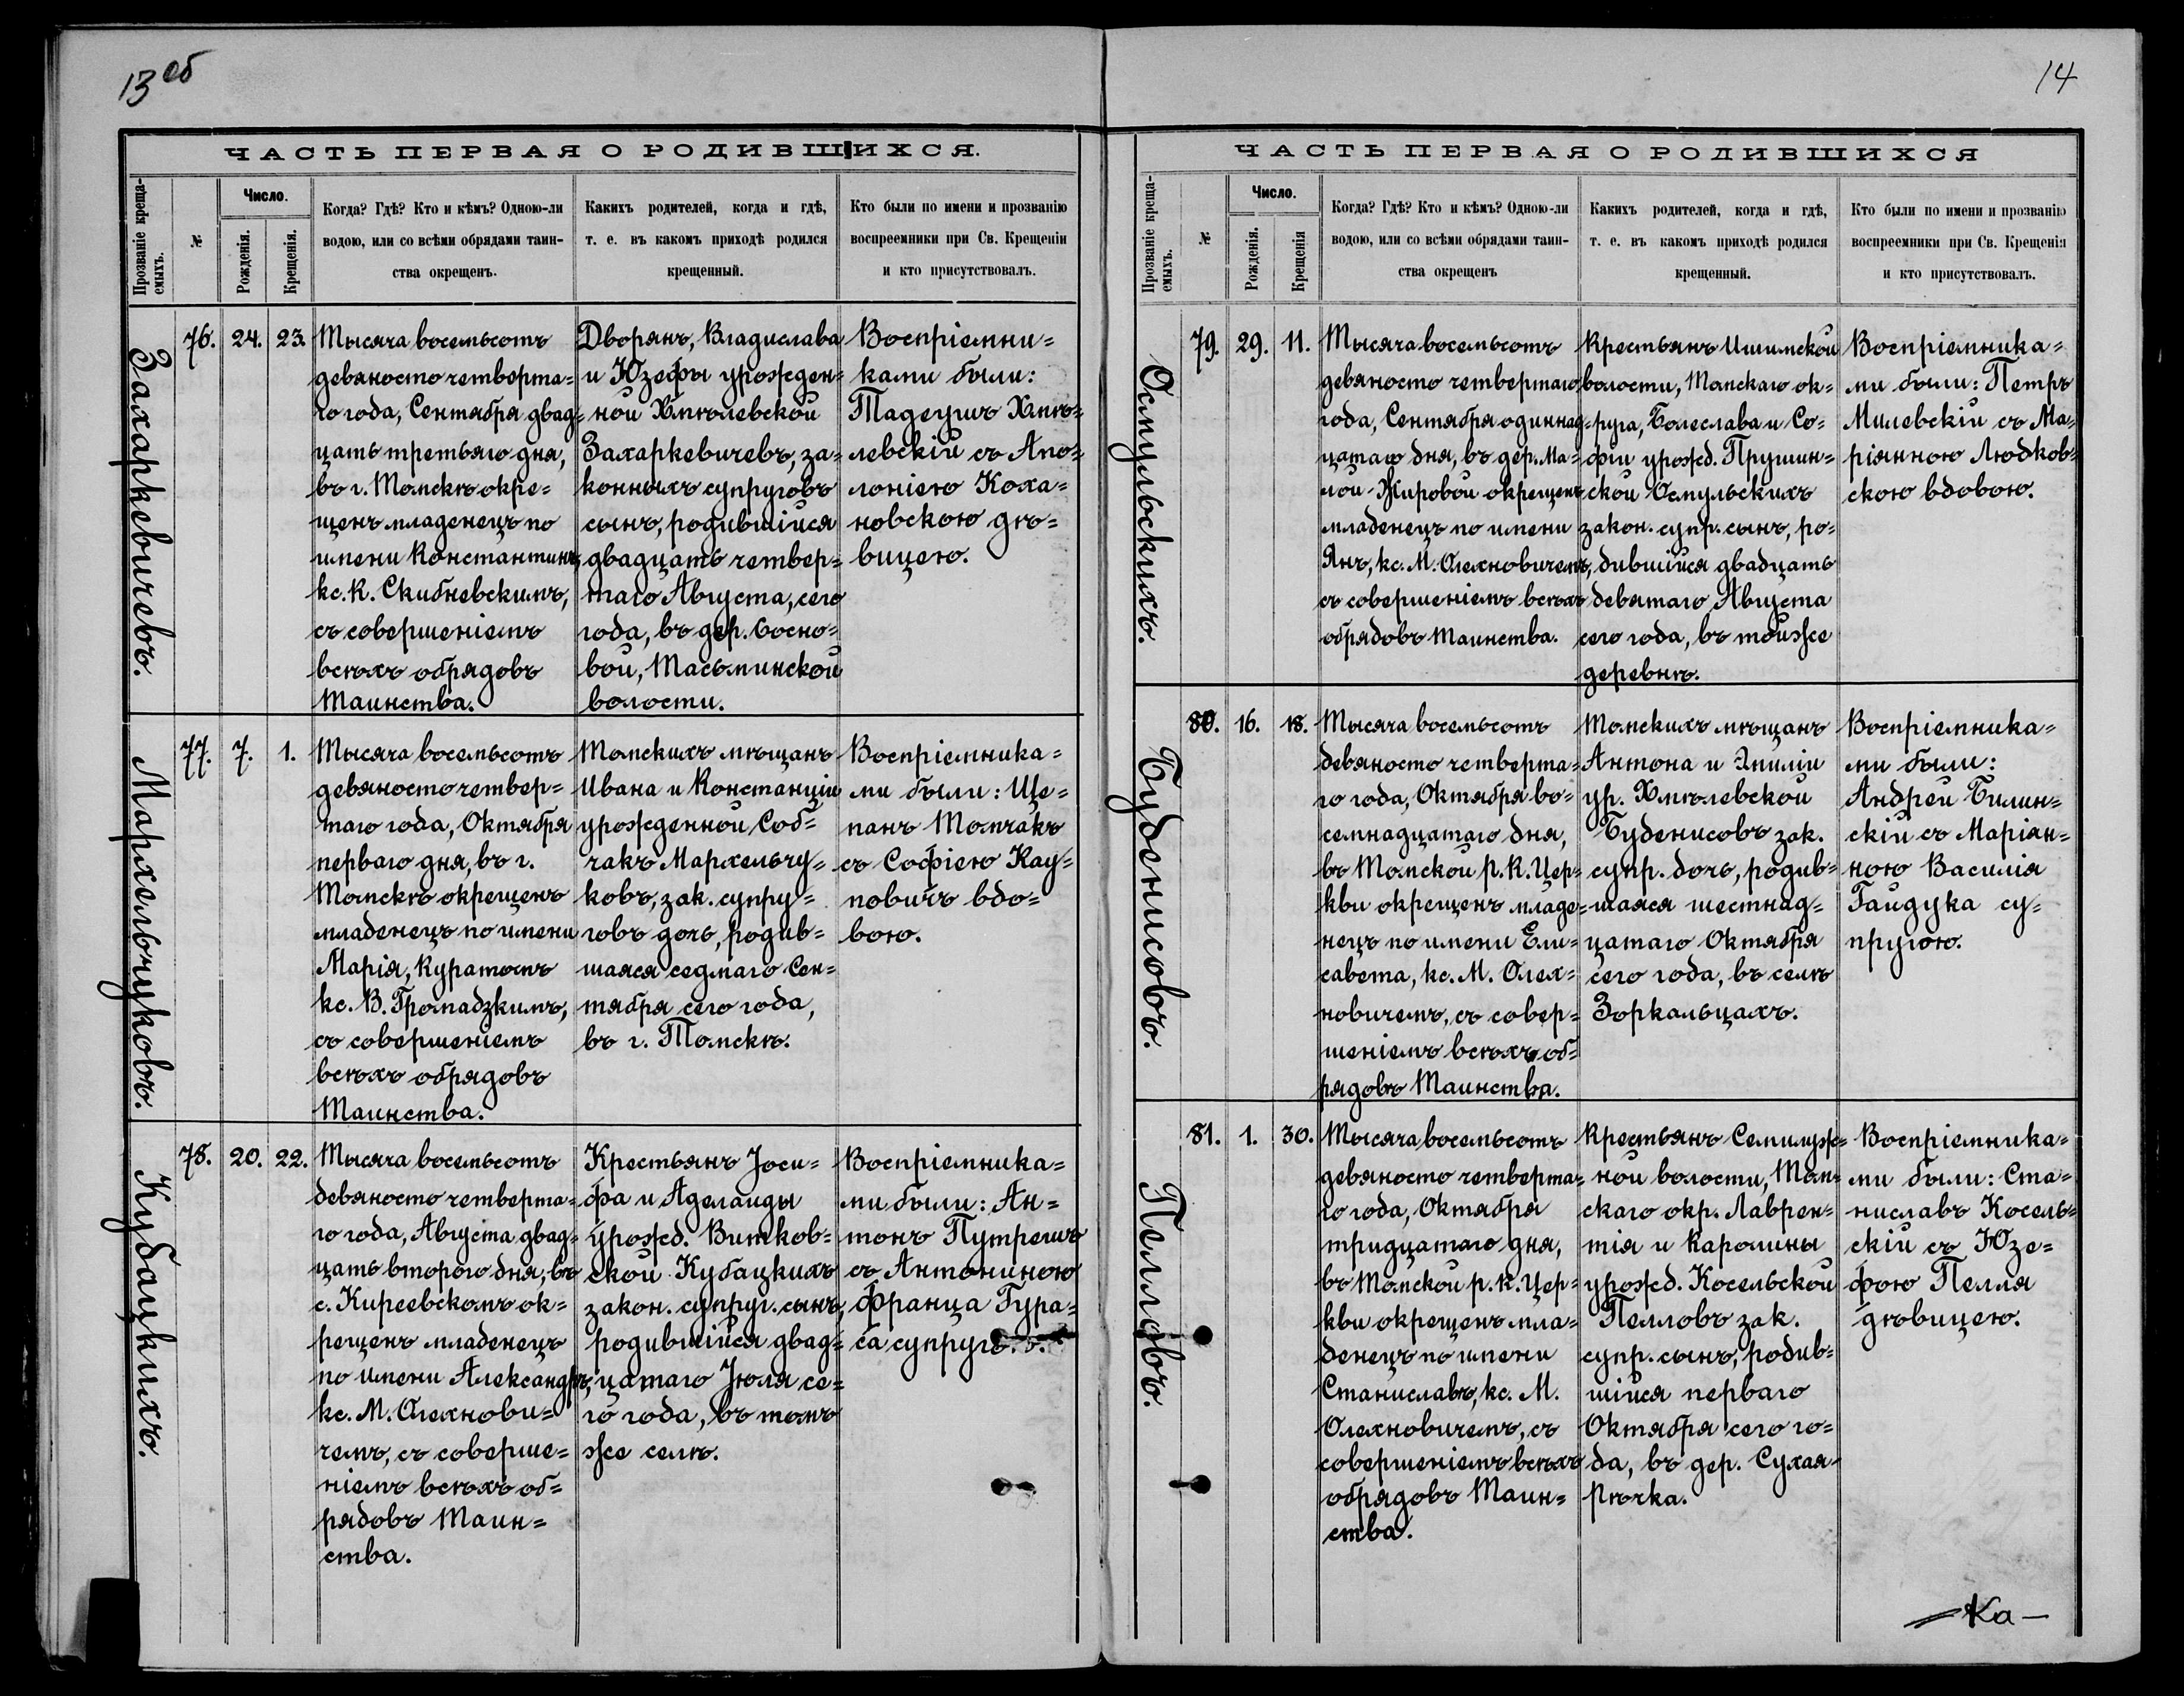 13 об
ЧАСТЬ ПЕРВАЯ О РОДИВШИХСЯ.
Прозваніе креща-
емыхъ.
№
Число.
Рожденія.
Крещенія.
Когда? Гдѣ? Кто и кѣмъ? Одною-ли
водою, или со всѣми обрядами таин-
ства окрещенъ.
Какихъ родителей, когда и гдѣ,
т. е. въ какомъ приходѣ родился
крещенный.
Кто были по имени и прозванію
воспреемники при Св. Крещеніи
и кто присутствовалъ.
Захаркевичевъ.
76.
24.
23.
Тысяча восемьсотъ
девяносто четверта=
го года, Сентября двад=
цать третьяго дня,
въ г. Томскѣ окре=
щенъ младенецъ по
имени Константинъ,
кс. К. Скибневскимъ,
съ совершеніемъ
всѣхъ обрядовъ
Таинства.
Дворянъ, Владислава
и Юзефы урожден=
ной Хмѣлевской
Захаркевичевъ, за=
конныхъ супруговъ
сынъ, родившійся
двадцать четвер=
таго Августа, сего
года, въ дер. Сосно=
вой, Тасьминской
волости.
Воспріемни=
ками были:
Тадеушъ Хмѣ=
левскій съ Апо=
лоніею Коха=
новскою дѣ=
вицею.
Мархельчуковъ.
77.
7.
1.
Тысяча восемьсотъ
девяносто четвер=
таго года, Октября
перваго дня, въ г.
Томскѣ окрещенъ
младенецъ по имени
Марія, Куратомъ
кс. В. Громадзкимъ,
съ совершеніемъ
всѣхъ обрядовъ
Таинства.
Томскихъ мѣщанъ
Ивана и Констанціи
урожденной Соб=
чакъ Мархельчу=
ковъ, зак. супру=
говъ дочь, родив=
шаяся седмаго Сен=
тября сего года,
въ г. Томскѣ.
Воспріемника=
ми были: Ще=
панъ Томчакъ
съ Софіею Кау=
повичъ вдо=
вою.
Кубацкихъ.
78.
20.
22.
Тысяча восемьсотъ
девяносто четверта=
го года, Августа двад=
цать второго дня, въ
с. Киреевскомъ ок=
рещенъ младенецъ
по имени Александръ,
кс. М. Олехнови=
чемъ, съ соверше=
ніемъ всѣхъ об=
рядовъ Таин=
ства.
Крестьянъ Іоси=
фа и Аделаиды
урожд. Витков=
ской Кубацкихъ
закон. супруг. сынъ,
родившійся двад=
цатаго Іюля се=
го года, въ томъ
же селѣ.
Воспріемника=
ми были: Ан=
тонъ Путрешъ
съ Антониною
Франца Гура=
са супруг.
14
ЧАСТЬ ПЕРВАЯ О РОДИВШИХСЯ
Прозваніе креща-
емыхъ.
№
Число.
Рожденія.
Крещенія
Когда? Гдѣ? Кто и кѣмъ? Одною-ли
водою, или со всѣми обрядами таин-
ства окрещенъ
Какихъ родителей, когда и гдѣ,
т. е. въ какомъ приходѣ родился
крещенный.
Кто были по имени и прозванію
воспреемники при Св. Крещенія
и кто присутствовалъ.
Осмульскихъ.
79.
29.
11.
Тысяча восемьсотъ
девяносто четвертаго
года, Сентября одиннад=
цатаго дня, въ дер. Ма=
лой-Жировой окрещенъ
младенецъ по имени
Янъ, кс. М. Олехновичемъ,
съ совершеніемъ всѣхъ
обрядовъ Таинства.
Крестьянъ Ишимской
волости, Томскаго ок=
руга, Болеслава и Со=
фіи урожд. Прушин=
ской Осмульскихъ
закон. супр. сынъ, ро=
дившійся двадцать
девятаго Августа
сего года, въ той же
деревнѣ.
Воспріемника=
ми были: Петръ
Милевскій съ Ма=
ріянною Людков=
скою вдовою.
Буденисовъ.
80.
16.
18.
Тысяча восемьсотъ
девяносто четверта=
го года, Октября во=
семнадцатаго дня,
въ Томской р. К. Цер=
кви окрещенъ младе=
нецъ по имени Ели=
савета, кс. М. Олех=
новичемъ, съ совер=
шеніемъ всѣхъ об=
рядовъ Таинства.
Томскихъ мѣщанъ
Антона и Эмиліи
ур. Хмѣлевской
Буденисовъ зак.
супр. дочь, родив=
шаяся шестнад=
цатаго Октября
сего года, въ селѣ
Зоркальцахъ.
Воспріемника=
ми были:
Андрей Билин=
скій съ Маріан=
ною Василія
Гайдука су=
пругою.
Пелловъ.
81.
1.
30.
Тысяча восемьсотъ
девяносто четверта=
го года, Октября
тридцатаго дня,
въ Томской р. к. Цер=
кви окрещенъ мла=
денецъ по имени
Станиславъ, кс. М.
Олехновичемъ, съ
совершеніемъ всѣхъ
обрядовъ Таин=
ства.
Крестьянъ Семилуж=
ной волости, Том=
скаго окр. Лаврен=
тія и Каролины
урожд. Косельской
Пелловъ зак.
супр. сынъ, родив=
шійся перваго
Октября сего го=
да, въ дер. Сухая-
рѣчка.
Воспріемника=
ми были: Ста=
ниславъ Косель=
скій съ Юзе=
фою Пелля
дѣвицею.
Ка—